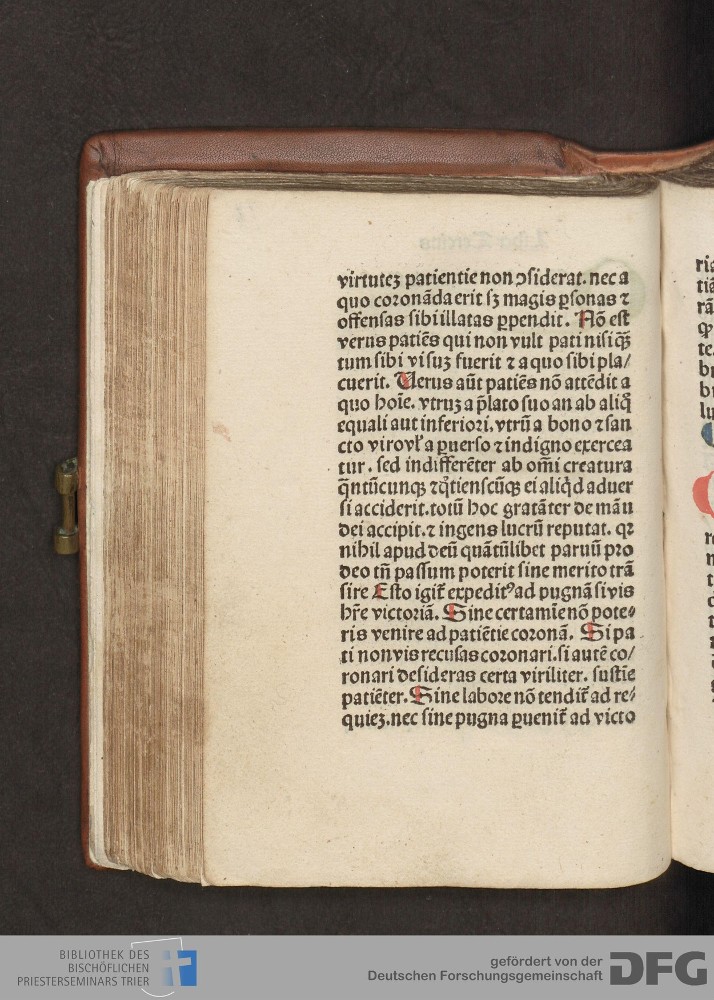 virtuteꝫ patientie non ↄsiderat. nec a
quo coronãda erit sꝫ magis ꝑsonas ⁊
offensas sibi illatas ꝑpendit. Nõ est
verus patiẽs qui non vult pati nisi qꝫ̃
tum sibi visuꝫ fuerit ⁊ a quo sibi pla/
cuerit. Uerus aũt patiẽs nõ attẽdit a
quo hoĩe. vtruꝫ a p̃lato suo an ab aliq̃
equali aut inferiori, vtrũ a bono ⁊ san
cto viro vł a ꝑuerso ⁊ indigno exercea
tur. sed indifferẽter ab om̃i creatura
q̃ntũcunqꝫ ⁊ q̃tienscũqꝫ ei aliq̃d aduer
si acciderit. totũ hoc gratãter de mãu
dei accipit. ⁊ ingens lucrũ reputat. qꝛ
nihil apud deũ quãtũlibet paruũ pro
deo tñ passum poterit sine merito trã
sire Esto igit̃ expeditꝰ ad pugnã si vis
hr̃e victoriã. Sine certamĩe nõ pote⸗
ris venire ad patiẽtie coronã. Si pa
ti non vis recusas coronari. si autẽ co/
ronari desideras certa viriliter. sustĩe
patiẽter. Sine labore nõ tendit̃ ad re⸗
quieꝫ. nec sine pugna ꝑuenit̃ ad victo
BIBLIOTHEK DES
BISCHÖFLICHEN
PRIESTERSEMINARS TRIER
gefördert von der
Deutschen Forschungsgemeinschaft
DFG